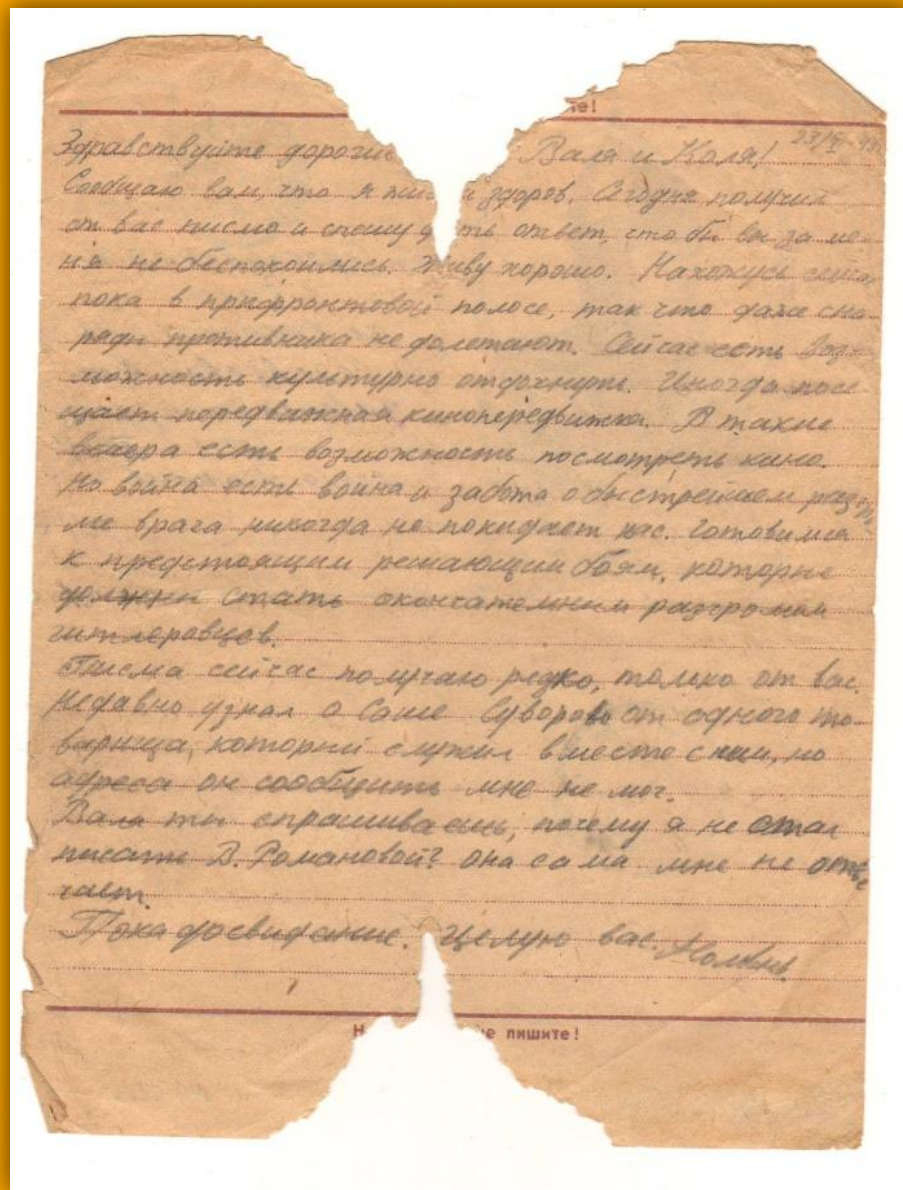 те!
23/VI-43
Здравствуйте дорогие Валя и Коля!
Сообщаю вам, что я жив и здоров. Сегодня получил
от вас писмо и спешу дать ответ, чтобы вы за ме-
ня не беспокоились. Живу хорошо. Нахожусь
пока в прифронтовой полосе, так что даже сна-
ряды противника не долетают. Сейчас есть воз-
можность культурно отдохнуть. Иногда посе-
щает передвижная кинопередвижка. В такие
вечера есть возможность посмотреть кино.
Но война есть война и забота о быстрейшем разгро-
ме врага никогда не покидает нас. Готовимся
к предстоящим решающим боям, которые
должны стать окончательным разгромом
гитлеровцев.
Писма сейчас получаю редко, только от вас.
Недавно узнал о Саше Суворове от одного то-
варища, который служил вместе с ним, но
адреса он сообщить мне не мог.
Валя ты спрашиваешь, почему я не стал
писать В. Романовой? Она сама мне не отве-
чает.
Пока досвидание. Целую вас.
Н е пишите!